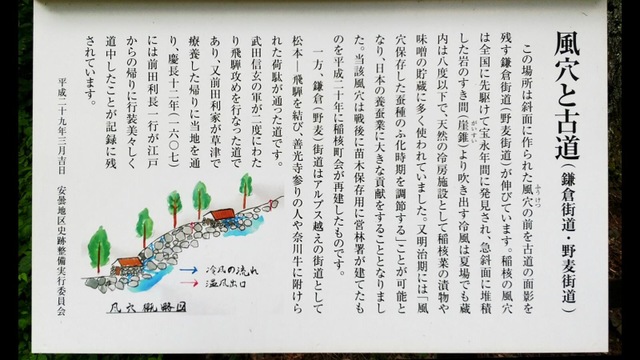 風穴と古道(鎌倉街道・野麦街道)
この場所は斜面に作られた風穴の前を古道の面影を
ふうけつ
残す鎌倉街道(野麦街道)が伸びています。稲核の風穴
は全国に先駆けて宝永年間に発見され、急斜面に堆積
した岩のすき間(崖錐)より吹き出す冷風は夏場でも蔵
がいすい
内は八度以下で、天然の冷房施設として稲核菜の漬物や
味噌の貯蔵に多く使われていました。又明治期には「風
穴保存した蚕種のふ化時期を調節する」ことが可能と
なり、日本の養蚕業に大きな貢献をすることとなりまし
た。当該風穴は戦後に苗木保存用に営林署が建てたも
のを平成二十年に稲核町会が再建したものです。
一方、鎌倉(野麦)街道はアルプス越えの街道として
松本―飛騨を結び、善光寺参りの人や奈川牛に附けら
れた荷駄が通った道です。
武田信玄の軍が二度にわた
り飛騨攻めを行なった道で
あり、又前田利家が草津で
療養した帰りに当地を通
り、慶長十二年(一六〇七)
には前田利長一行が江戸
からの帰りに行装美々しく
道中したことが記録に残
されています。
平成二十九年三月吉日 安曇地区史跡整備実行委員会
→ 冷風の流れ
→ 温風出口
風穴概略図